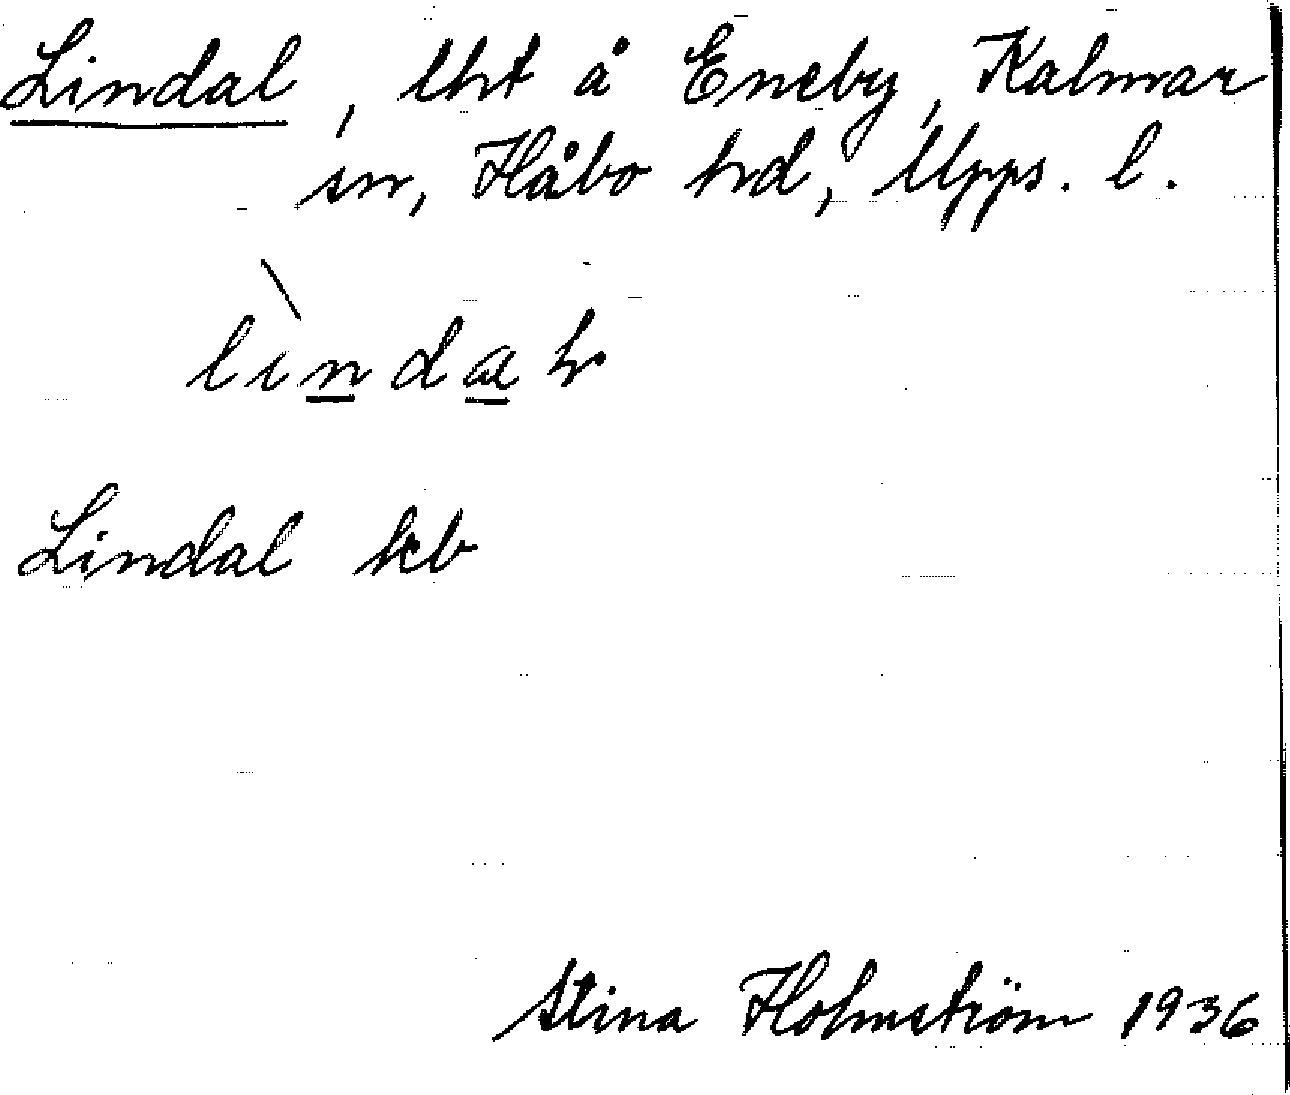 Lindal, lht å Eneby, Kalmar
sn, Håbo hd, Upps. l.
lìndal
Lindal kb
Stina Holmström 1936